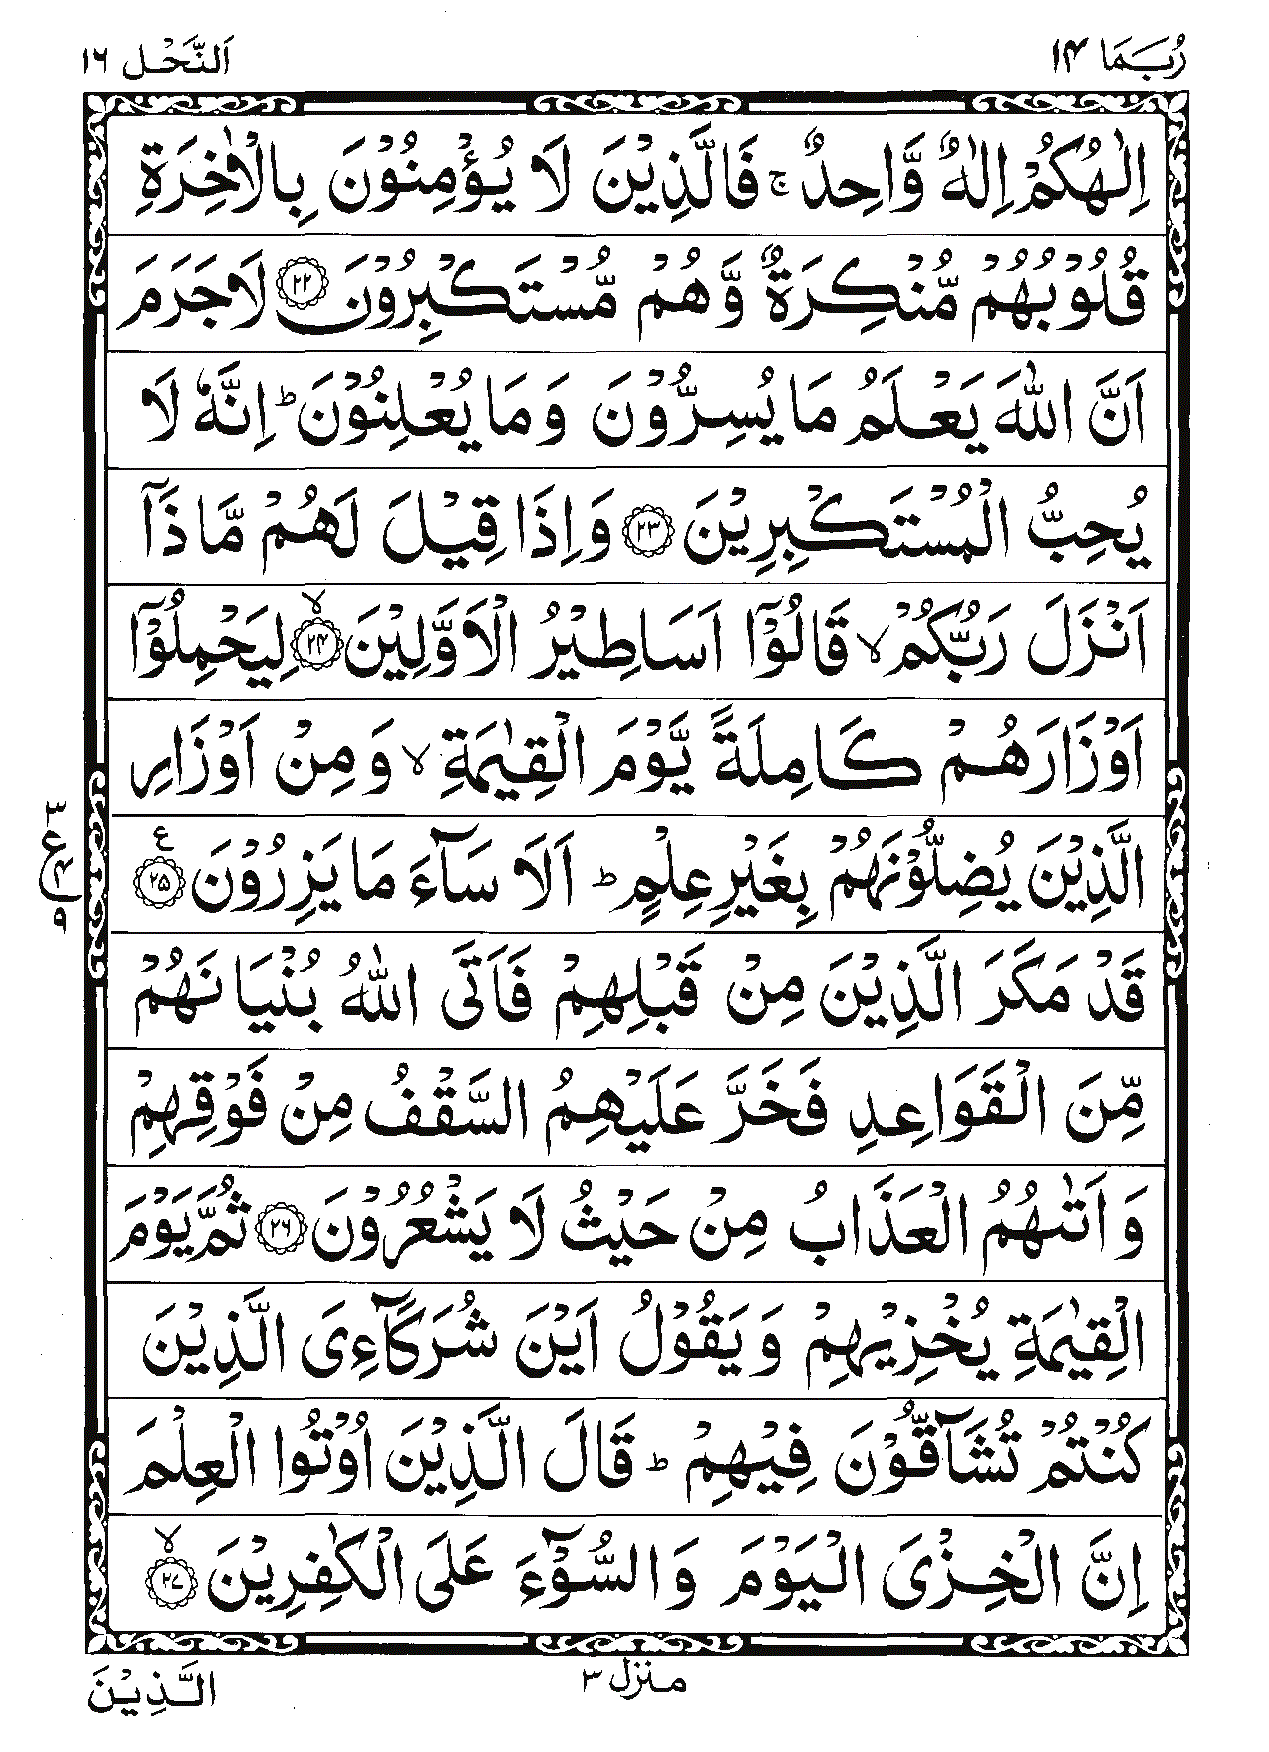 رُبَمَا ١٤
اَلنَّحْل ١٦
اِلٰهُكُمْ اِلٰهٌ وَّاحِدٌ ۚ فَالَّذِيْنَ لَا يُؤْمِنُوْنَ بِالْاٰخِرَةِ
قُلُوْبُهُمْ مُّنْكِرَةٌ وَّهُمْ مُّسْتَكْبِرُوْنَ ﴿٢٢﴾ لَا جَرَمَ
اَنَّ اللّٰهَ يَعْلَمُ مَا يُسِرُّوْنَ وَمَا يُعْلِنُوْنَ ؕ اِنَّهٗ لَا
يُحِبُّ الْمُسْتَكْبِرِيْنَ ﴿٢٣﴾ وَاِذَا قِيْلَ لَهُمْ مَّاذَآ
اَنْزَلَ رَبُّكُمْ ۙ قَالُوْٓا اَسَاطِيْرُ الْاَوَّلِيْنَ ﴿٢٤﴾ ۙ لِيَحْمِلُوْٓا
اَوْزَارَهُمْ كَامِلَةً يَّوْمَ الْقِيٰمَةِ ۙ وَمِنْ اَوْزَارِ
الَّذِيْنَ يُضِلُّوْنَهُمْ بِغَيْرِ عِلْمٍ ؕ اَلَا سَآءَ مَا يَزِرُوْنَ ﴿٢٥﴾ ع
٣ ع ٤ ٩
قَدْ مَكَرَ الَّذِيْنَ مِنْ قَبْلِهِمْ فَاَتَى اللّٰهُ بُنْيَانَهُمْ
مِّنَ الْقَوَاعِدِ فَخَرَّ عَلَيْهِمُ السَّقْفُ مِنْ فَوْقِهِمْ
وَاَتٰىهُمُ الْعَذَابُ مِنْ حَيْثُ لَا يَشْعُرُوْنَ ﴿٢٦﴾ ثُمَّ يَوْمَ
الْقِيٰمَةِ يُخْزِيْهِمْ وَيَقُوْلُ اَيْنَ شُرَكَآءِىَ الَّذِيْنَ
كُنْتُمْ تُشَآقُّوْنَ فِيْهِمْ ؕ قَالَ الَّذِيْنَ اُوْتُوا الْعِلْمَ
اِنَّ الْخِزْىَ الْيَوْمَ وَالسُّوْٓءَ عَلَى الْكٰفِرِيْنَ ﴿٢٧﴾ ۙ
منزل ٣
الَّذِيْنَ